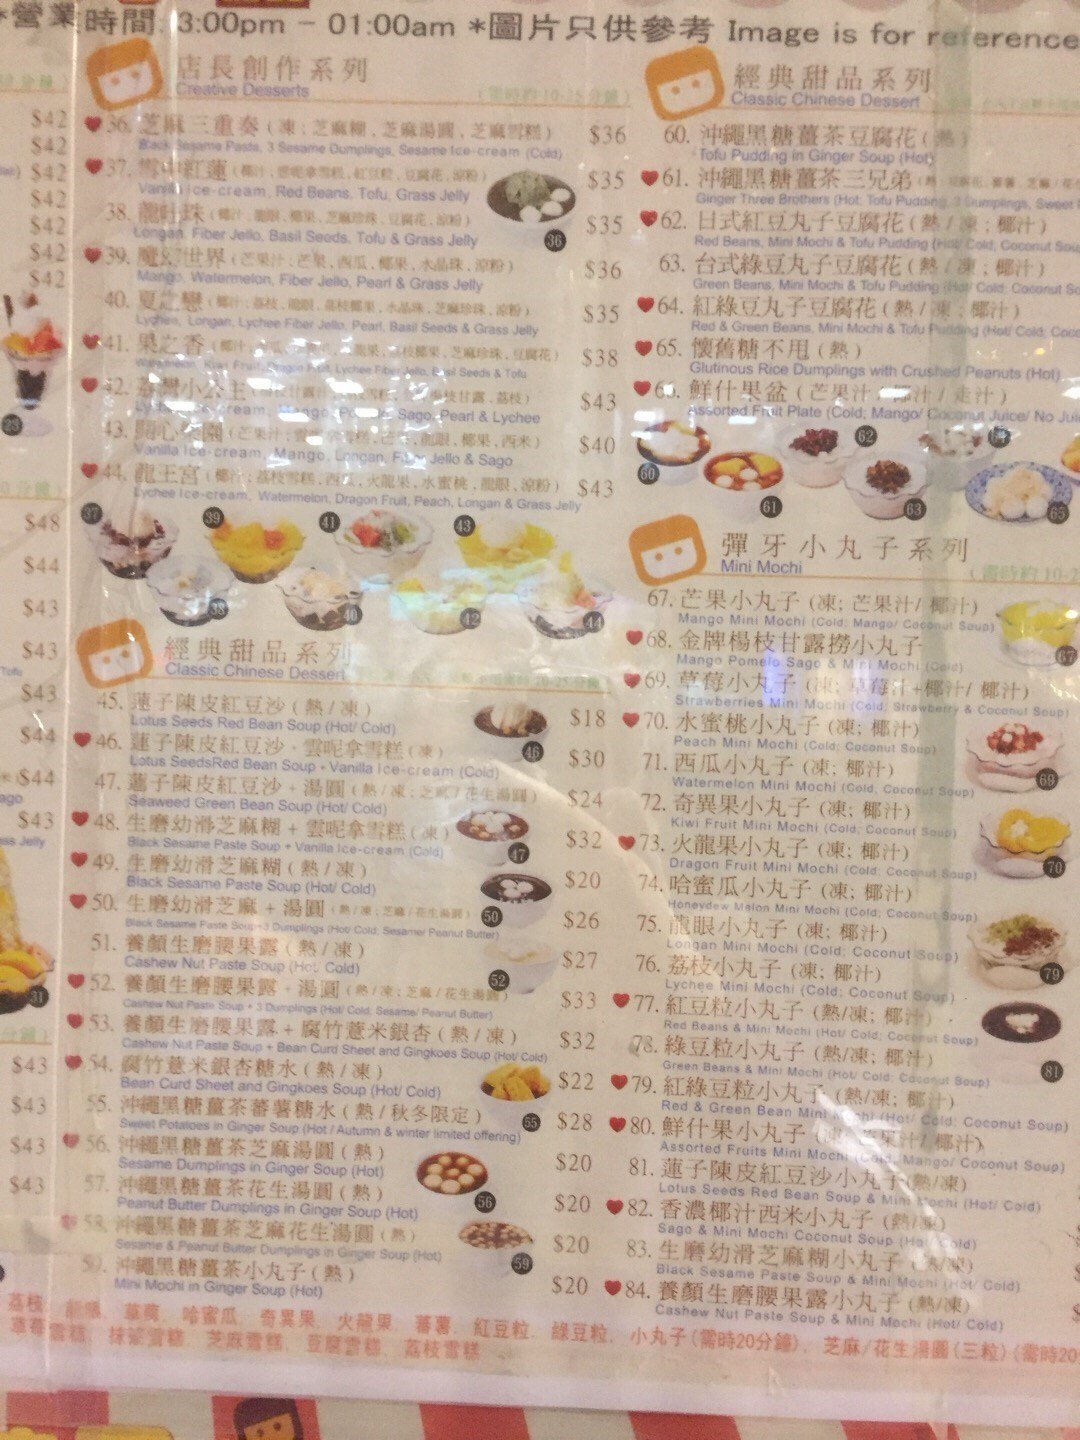 *營業時間: 3:00pm - 01:00am *圖片只供參考 Image is for reference
店長創作系列
Creative Desserts
36. 芝麻三重奏 (凍; 芝麻糊, 芝麻湯圓, 芝麻雪糕) $36
Black Sesame Paste, 3 Sesame Dumplings, Sesame Ice-cream (Cold)
37. 雪中紅蓮 $35
Vanilla ice-cream, Red Beans, Tofu, Grass Jelly
38. 龍吐珠 $35
Longan, Fiber Jello, Basil Seeds, Tofu & Grass Jelly
39. 魔幻世界 (芒果汁; 芒果, 西瓜, 椰果, 水晶珠, 涼粉) $36
Mango, Watermelon, Fiber Jello, Pearl & Grass Jelly
40. 夏之戀 $35
Lychee, Longan, Lychee Fiber Jello, Pearl, Basil Seeds & Grass Jelly
41. 果之香 $38
Watermelon, Kiwi Fruit, Dragon Fruit, Lychee Fiber Jello, Basil Seeds & Tofu
42. 小公主 $43
Ice-cream, Mango, Pomelo, Sago, Pearl & Lychee
43. 開心樂園 $40
Vanilla Ice-cream, Mango, Longan, Fiber Jello & Sago
44. 龍王宮 (椰汁; 荔枝雪糕, 西瓜, 火龍果, 水蜜桃, 龍眼, 涼粉) $43
Lychee Ice-cream, Watermelon, Dragon Fruit, Peach, Longan & Grass Jelly
經典甜品系列
Classic Chinese Dessert
45. 蓮子陳皮紅豆沙 (熱/凍) $18
Lotus Seeds Red Bean Soup (Hot/ Cold)
46. 蓮子陳皮紅豆沙 + 雲呢拿雪糕 (凍) $30
Lotus SeedsRed Bean Soup + Vanilla Ice-cream (Cold)
47. 蓮子陳皮紅豆沙 + 湯圓 (熱/凍; 芝麻/花生湯圓) $24
Seaweed Green Bean Soup (Hot/ Cold)
48. 生磨幼滑芝麻糊 + 雲呢拿雪糕 (凍) $32
Black Sesame Paste Soup + Vanilla Ice-cream (Cold)
49. 生磨幼滑芝麻糊 (熱/凍) $20
Black Sesame Paste Soup (Hot/ Cold)
50. 生磨幼滑芝麻 + 湯圓 (熱/凍; 芝麻/花生湯圓) $26
Black Sesame Paste Soup+3 Dumplings (Hot/ Cold; Sesame/ Peanut Butter)
51. 養顏生磨腰果露 (熱/凍) $27
Cashew Nut Paste Soup (Hot/ Cold)
52. 養顏生磨腰果露 + 湯圓 (熱/凍; 芝麻/花生湯圓) $33
Cashew Nut Paste Soup + 3 Dumplings (Hot/ Cold; Sesame/ Peanut Butter)
53. 養顏生磨腰果露 + 腐竹薏米銀杏 (熱/凍) $32
Cashew Nut Paste Soup + Bean Curd Sheet and Gingkoes Soup (Hot/ Cold)
54. 腐竹薏米銀杏糖水 (熱/凍) $22
Bean Curd Sheet and Gingkoes Soup (Hot/ Cold)
55. 沖繩黑糖薑茶蕃薯糖水 (熱/秋冬限定) $28
Sweet Potatoes in Ginger Soup (Hot / Autumn & winter limited offering)
56. 沖繩黑糖薑茶芝麻湯圓 (熱) $20
Sesame Dumplings in Ginger Soup (Hot)
57. 沖繩黑糖薑茶花生湯圓 (熱) $20
Peanut Butter Dumplings in Ginger Soup (Hot)
58. 沖繩黑糖薑茶芝麻花生湯圓 (熱) $20
Sesame & Peanut Butter Dumplings in Ginger Soup (Hot)
59. 沖繩黑糖薑茶小丸子 (熱) $20
Mini Mochi in Ginger Soup (Hot)
經典甜品系列
Classic Chinese Dessert
60. 沖繩黑糖薑茶豆腐花 (熱)
Tofu Pudding in Ginger Soup (Hot)
61. 沖繩黑糖薑茶三兄弟
Ginger Three Brothers (Hot; Tofu Pudding, 3 Dumplings, Sweet
62. 日式紅豆丸子豆腐花 (熱/凍; 椰汁)
Red Beans, Mini Mochi & Tofu Pudding (Hot/ Cold; Coconut Sou
63. 台式綠豆丸子豆腐花 (熱/凍; 椰汁)
Green Beans, Mini Mochi & Tofu Pudding (Hot/ Cold; Coconut So
64. 紅綠豆丸子豆腐花 (熱/凍; 椰汁)
Red & Green Beans, Mini Mochi & Tofu Pudding (Hot/ Cold; Coco
65. 懷舊糖不甩 (熱)
Glutinous Rice Dumplings with Crushed Peanuts (Hot)
66. 鮮什果盆 (芒果汁/椰汁/走汁)
Assorted Fruit Plate (Cold; Mango/ Coconut Juice/ No Jui
彈牙小丸子系列
Mini Mochi
67. 芒果小丸子 (凍; 芒果汁/ 椰汁)
Mango Mini Mochi (Cold; Mango/ Coconut Soup)
68. 金牌楊枝甘露撈小丸子
Mango Pomelo Sago & Mini Mochi (Cold)
69. 草莓小丸子 (凍; 草莓汁+椰汁/ 椰汁)
Strawberries Mini Mochi (Cold; Strawberry & Coconut Soup)
70. 水蜜桃小丸子 (凍; 椰汁)
Peach Mini Mochi (Cold; Coconut Soup)
71. 西瓜小丸子 (凍; 椰汁)
Watermelon Mini Mochi (Cold; Coconut Soup)
72. 奇異果小丸子 (凍; 椰汁)
Kiwi Fruit Mini Mochi (Cold; Coconut Soup)
73. 火龍果小丸子 (凍; 椰汁)
Dragon Fruit Mini Mochi (Cold; Coconut Soup)
74. 哈蜜瓜小丸子 (凍; 椰汁)
Honeydew Malon Mini Mochi (Cold; Coconut Soup)
75. 龍眼小丸子 (凍; 椰汁)
Longan Mini Mochi (Cold; Coconut Soup)
76. 荔枝小丸子 (凍; 椰汁)
Lychee Mini Mochi (Cold; Coconut Soup)
77. 紅豆粒小丸子 (熱/凍; 椰汁)
Red Beans & Mini Mochi (Hot/ Cold; Coconut Soup)
78. 綠豆粒小丸子 (熱/凍; 椰汁)
Green Beans & Mini Mochi (Hot/ Cold; Coconut Soup)
79. 紅綠豆粒小丸子 (熱/凍; 椰汁)
Red & Green Bean Mini Mochi (Hot/ Cold; Coconut Soup)
80. 鮮什果小丸子 (凍; 芒果汁/ 椰汁)
Assorted Fruits Mini Mochi (Cold; Mango/ Coconut Soup)
81. 蓮子陳皮紅豆沙小丸子 (熱/凍)
Lotus Seeds Red Bean Soup & Mini Mochi (Hot/ Cold)
82. 香濃椰汁西米小丸子 (熱/凍)
Sago & Mini Mochi Coconut Soup (Hot/ Cold)
83. 生磨幼滑芝麻糊小丸子 (熱/凍)
Black Sesame Paste Soup & Mini Mochi (Hot/ Cold)
84. 養顏生磨腰果露小丸子 (熱/凍)
Cashew Nut Paste Soup & Mini Mochi (Hot/ Cold)
荔枝, 龍眼, 草莓, 哈蜜瓜, 奇異果, 火龍果, 蕃薯, 紅豆粒, 綠豆粒, 小丸子(需時20分鐘), 芝麻/花生湯圓(三粒)(需時20
草莓雪糕, 抹茶雪糕, 芝麻雪糕, 豆腐雪糕, 荔枝雪糕